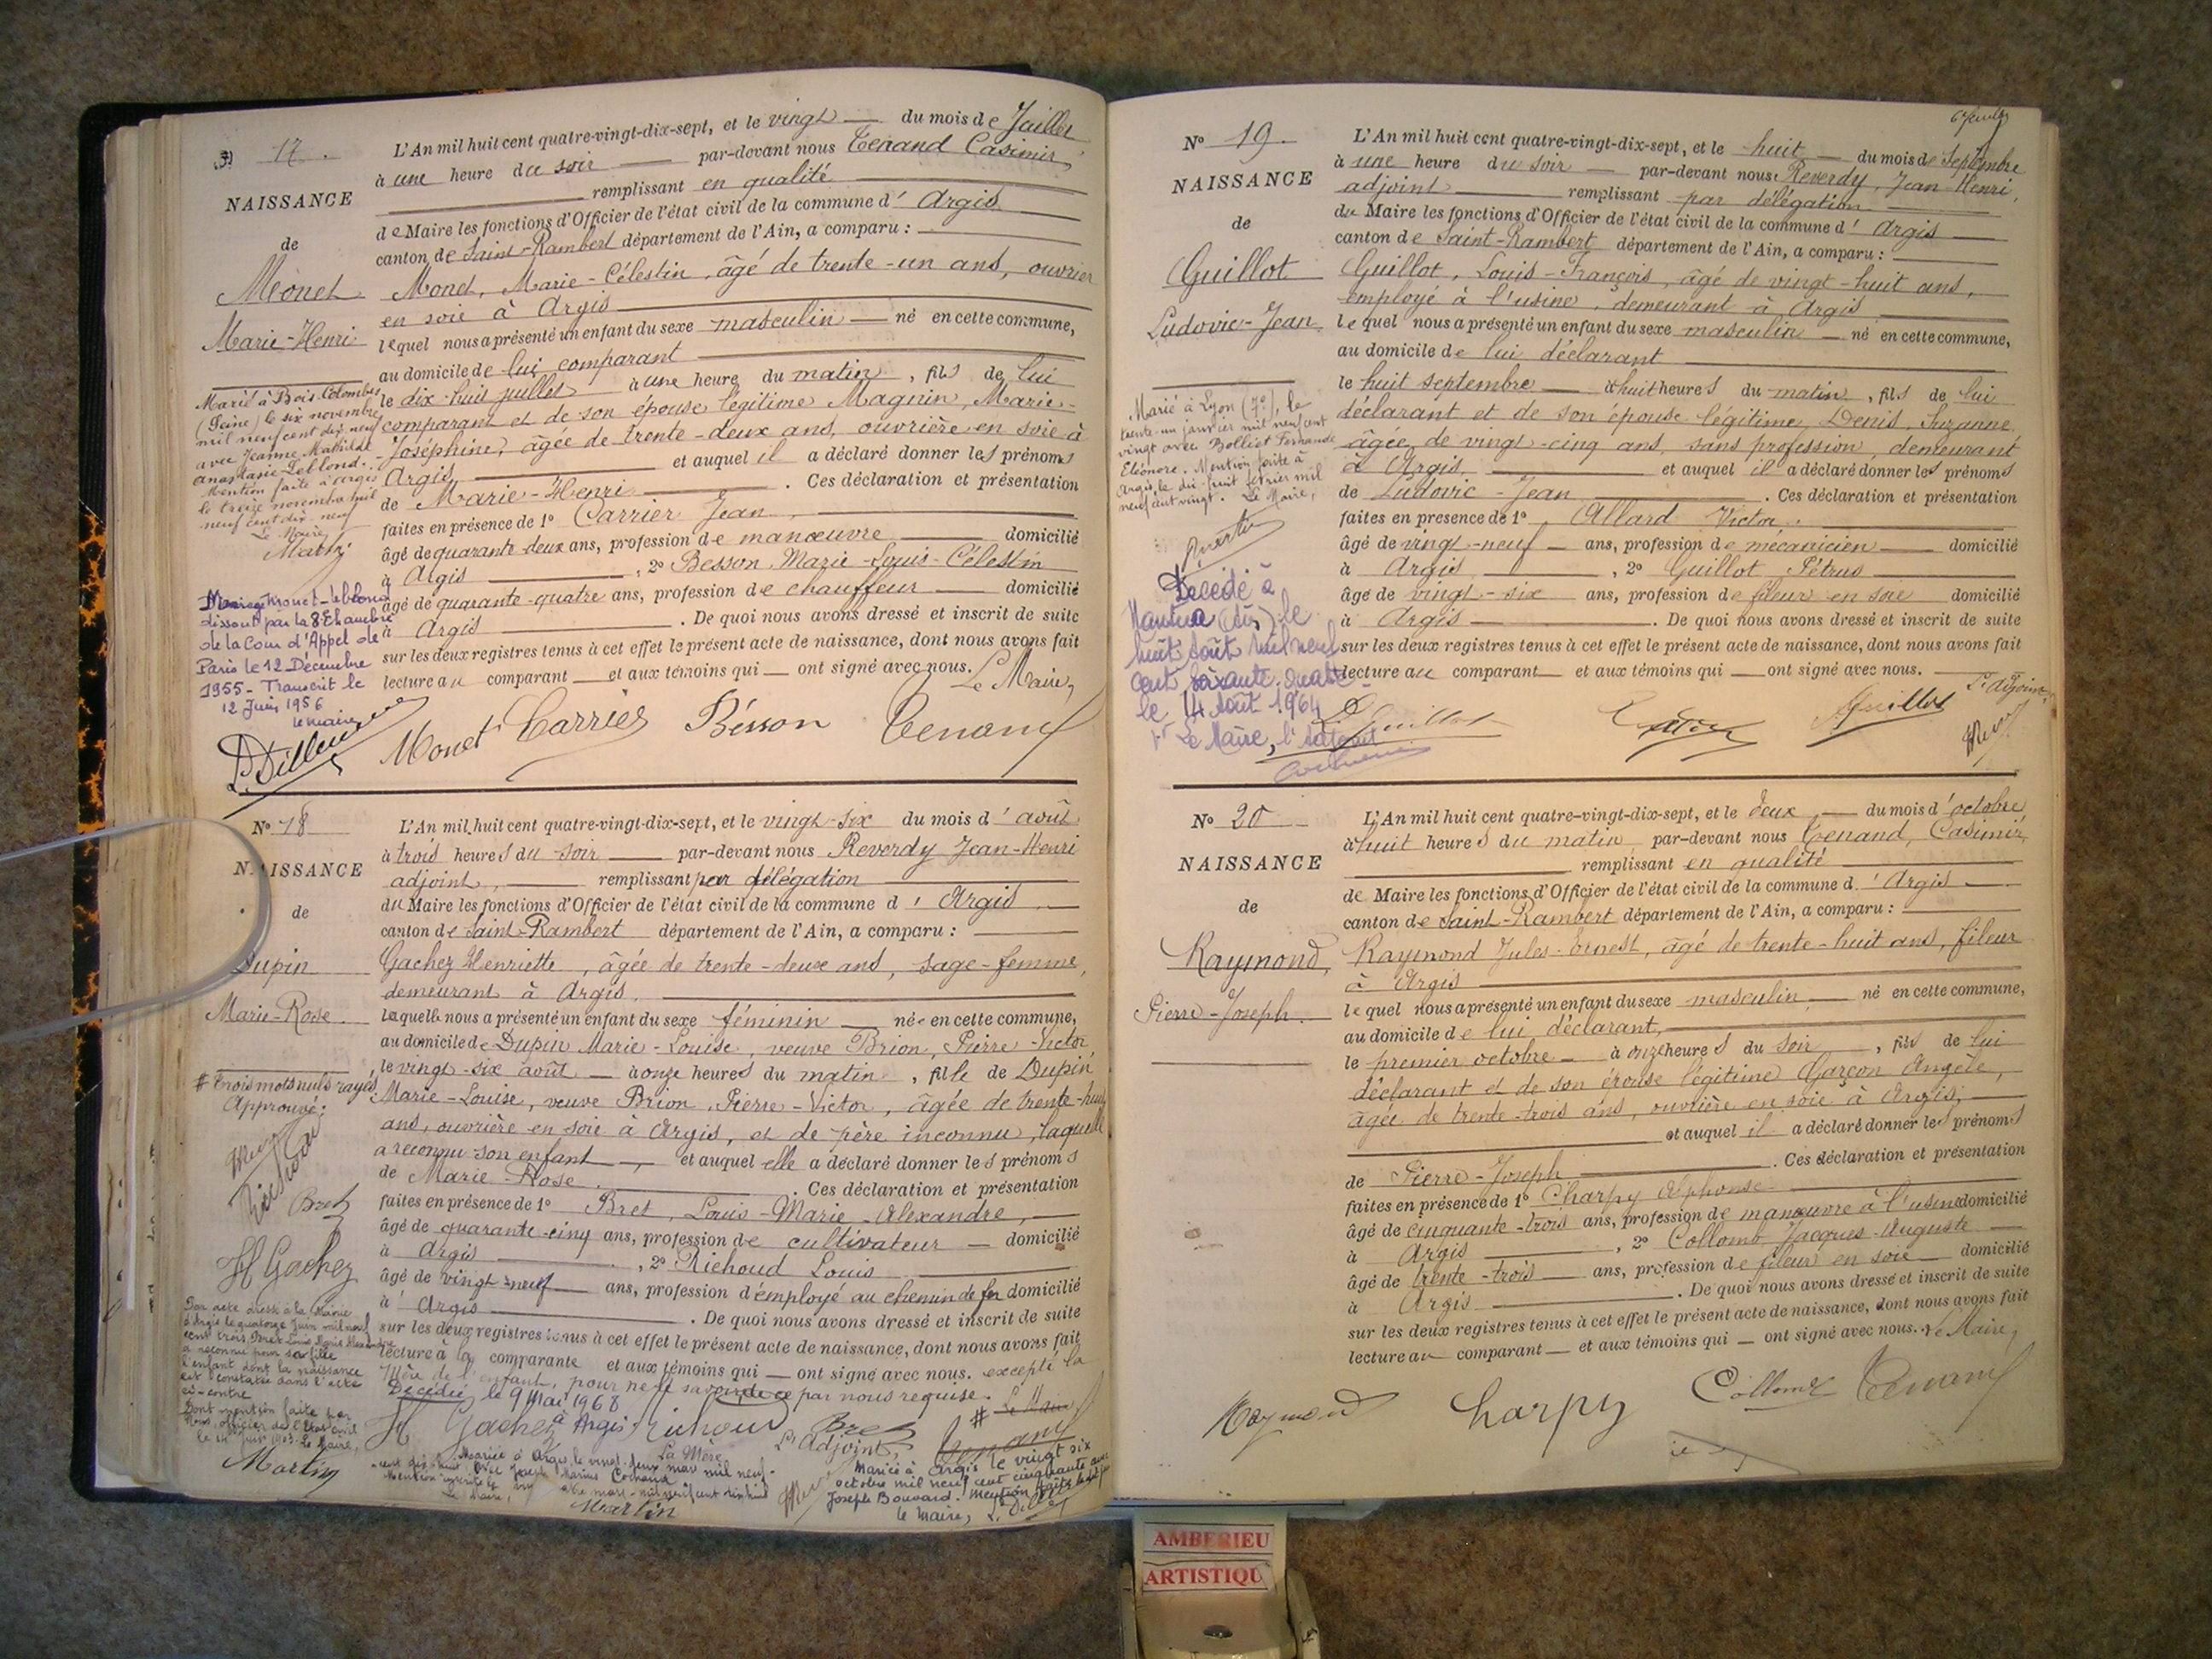 17.
NAISSANCE
de
Monet
Marie-Henri
Marié à Bois-Colombes
(Seine) le six novembre
mil neuf cent dix neuf
avec Jeanne Mathilde
Anastasie Leblond.
Mention faite à Argis
le treize novembre mil
neuf cent dix neuf
Le Maire
Mariage Monet-Leblond
dissout par la 8e Chambre
de la Cour d'Appel de
Paris le 12 Décembre
1955 - Transcrit le
12 Juin 1956
le maire
L'An mil huit cent quatre-vingt-dix-sept, et le vingt du mois de Juillet
à une heure du soir par-devant nous Tenand Casimir
remplissant en qualité
de Maire les fonctions d'Officier de l'état civil de la commune d'Argis
canton de Saint-Rambert département de l'Ain, a comparu :
Monet, Marie-Célestin, âgé de trente-un ans, ouvrier
en soie à Argis
lequel nous a présenté un enfant du sexe masculin né en cette commune,
au domicile de lui comparant
le dix-huit juillet à une heure du matin, fils de lui
comparant et de son épouse légitime Magnin, Marie-
Joséphine, âgée de trente-deux ans, ouvrière en soie à
Argis et auquel il a déclaré donner les prénoms
de Marie-Henri. Ces déclaration et présentation
faites en présence de 1° Carrier Jean
âgé de quarante-deux ans, profession de manœuvre domicilié
à Argis, 2° Besson Marie-Louis-Célestin
âgé de quarante-quatre ans, profession de chauffeur domicilié
à Argis. De quoi nous avons dressé et inscrit de suite
sur les deux registres tenus à cet effet le présent acte de naissance, dont nous avons fait
lecture au comparant et aux témoins qui ont signé avec nous. Le Maire,
Monet Carrier Bésson Tenand
N° 18
NAISSANCE
de
Dupin
Marie-Rose
# trois mots nuls rayés
Approuvé:
Richoud
Bret
H Gachez
Par acte dressé à la Mairie
d'Argis le quatorze Juin mil neuf
cent trois, Bret Louis Marie Alexandre
a reconnu pour sa fille
l'enfant dont la naissance
est constatée dans l'acte
ci-contre
Dont mention faite par
Nous, officier de l'Etat civil
le 14 Juin 1903. Le Maire,
Martin
L'An mil huit cent quatre-vingt-dix-sept, et le vingt-six du mois d'août
à trois heures du soir par-devant nous Reverdy Jean-Henri
adjoint, remplissant par délégation
du Maire les fonctions d'Officier de l'état civil de la commune d'Argis
canton de Saint-Rambert département de l'Ain, a comparu :
Gachez Henriette, âgée de trente-deux ans, sage-femme,
demeurant à Argis.
laquelle nous a présenté un enfant du sexe féminin née en cette commune,
au domicile de Dupin Marie-Louise, veuve Brion, Pierre-Victor
, le vingt-six août à onze heures du matin, fille de Dupin
Marie-Louise, veuve Brion, Pierre-Victor, âgée de trente-huit
ans, ouvrière en soie à Argis, et de père inconnu, laquelle
a reconnu son enfant, et auquel elle a déclaré donner les prénoms
de Marie-Rose. Ces déclaration et présentation
faites en présence de 1° Bret, Louis-Marie-Alexandre,
âgé de quarante-cinq ans, profession de cultivateur domicilié
à Argis, 2° Richoud Louis
âgé de vingt-neuf ans, profession d'employé au chemin de fer domicilié
à Argis. De quoi nous avons dressé et inscrit de suite
sur les deux registres tenus à cet effet le présent acte de naissance, dont nous avons fait
lecture à la comparante et aux témoins qui ont signé avec nous. excepté la
Mère de l'enfant, pour ne le savoir de ce par nous requise.
Décédée le 9 Mai 1968 # Le Maire
à Argis
H Gachez Richoud Bret Tenand
L'Adjoint,
La Mère
Mariée à Argis le vingt-deux mars mil neuf
cent dix-huit avec Joseph Marius Cochand
Le Maire,
Martin
Mariée à Argis le vingt six
octobre mil neuf cent cinquante avec
Joseph Bouvard. Mention faite
le Maire,
N° 19.
NAISSANCE
de
Guillot
Ludovic-Jean.
Marié à Lyon (7e), le
trente-un janvier mil neuf cent
vingt avec Bolliet Fernande
Eléonore. Mention faite à
Argis, le dix-huit février mil
neuf cent vingt. Le Maire,
Décédé à
Nantua (Ain) le
huit Août mil neuf
cent soixante-quatre
le 14 Août 1964
Le Maire, l'adjoint
L'An mil huit cent quatre-vingt-dix-sept, et le huit du mois de Septembre
à une heure du soir par-devant nous Reverdy, Jean-Henri,
adjoint remplissant par délégation
du Maire les fonctions d'Officier de l'état civil de la commune d'Argis
canton de Saint-Rambert département de l'Ain, a comparu :
Guillot, Louis-François, âgé de vingt-huit ans,
employé à l'usine, demeurant à Argis
lequel nous a présenté un enfant du sexe masculin né en cette commune,
au domicile de lui déclarant
le huit septembre à huit heures du matin, fils de lui
déclarant et de son épouse légitime, Denis, Suzanne
âgée de vingt-cinq ans, sans profession, demeurant
à Argis, et auquel il a déclaré donner les prénoms
de Ludovic-Jean. Ces déclaration et présentation
faites en présence de 1° Allard Victor.
âgé de vingt-neuf ans, profession de mécanicien domicilié
à Argis, 2° Guillot Pétrus
âgé de vingt-six ans, profession de fileur en soie domicilié
à Argis. De quoi nous avons dressé et inscrit de suite
sur les deux registres tenus à cet effet le présent acte de naissance, dont nous avons fait
lecture au comparant et aux témoins qui ont signé avec nous.
L'adjoint,
Guillot Guillot
N° 20
NAISSANCE
de
Raymond,
Pierre-Joseph.
L'An mil huit cent quatre-vingt-dix-sept, et le deux du mois d'octobre
à huit heures du matin par-devant nous Tenand, Casimir,
remplissant en qualité
de Maire les fonctions d'Officier de l'état civil de la commune d'Argis
canton de Saint-Rambert département de l'Ain, a comparu :
Raymond Jules-Ernest, âgé de trente-huit ans, fileur
à Argis
lequel nous a présenté un enfant du sexe masculin né en cette commune,
au domicile de lui déclarant,
le premier octobre à onze heures du soir, fils de lui
déclarant et de son épouse légitime Garçon Angèle,
âgée de trente-trois ans, ouvrière en soie à Argis,
et auquel il a déclaré donner les prénoms
de Pierre-Joseph. Ces déclaration et présentation
faites en présence de 1° Charpy Alphonse
âgé de cinquante-trois ans, profession de manœuvre à l'usine domicilié
à Argis, 2° Collomb Jacques-Auguste
âgé de trente-trois ans, profession de fileur en soie domicilié
à Argis. De quoi nous avons dressé et inscrit de suite
sur les deux registres tenus à cet effet le présent acte de naissance, dont nous avons fait
lecture au comparant et aux témoins qui ont signé avec nous. Le Maire,
Raymond Charpy Collomb Tenand
AMBERIEU
ARTISTIQU